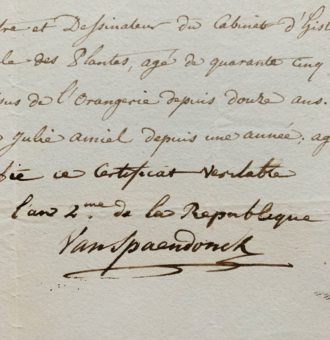 tre et Dessinateur du Cabinet d'Hist
le des Plantes, agé de quarante cinq
sus de l'Orangerie depuis douze ans.
Julie amiel depuis une année. ag
fie ce Certificat Veritable
l'an 2.me de la Republique
Vanspaendonck